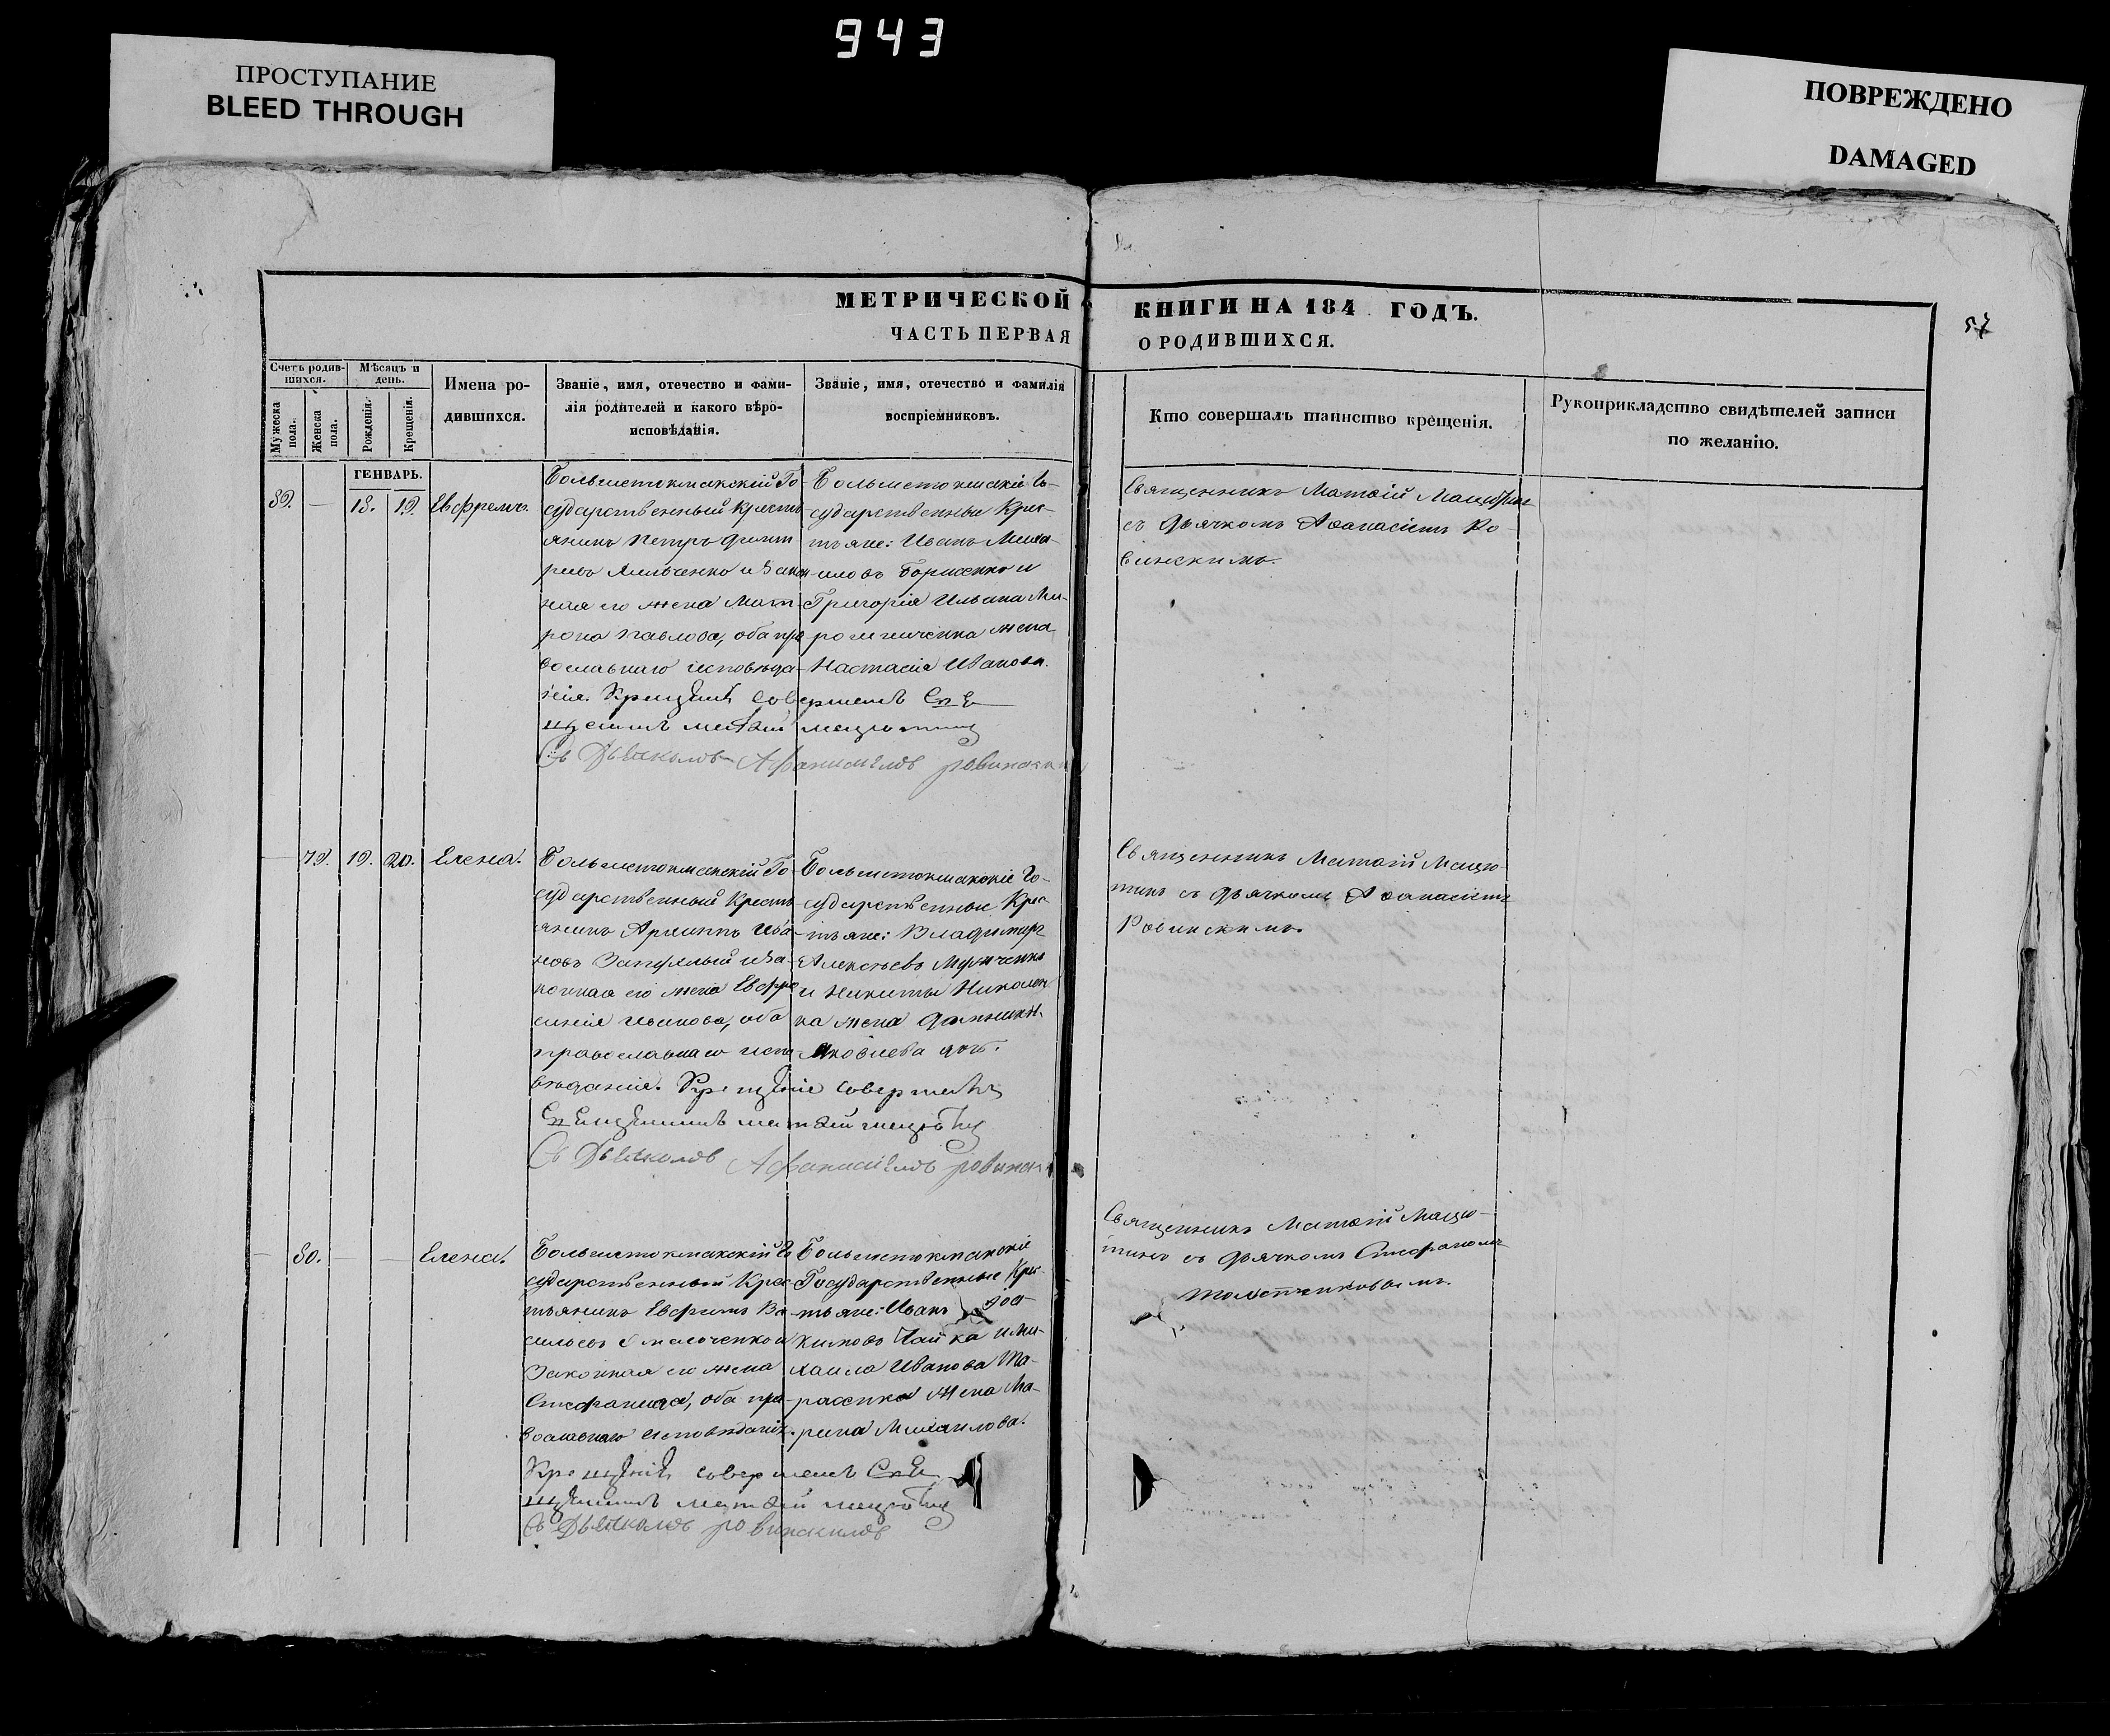 943
ПРОСТУПАНИЕ
BLEED THROUGH
ПОВРЕЖДЕНО
DAMAGED
МЕТРИЧЕСКОЙ КНИГИ НА 184 ГОДЪ.
ЧАСТЬ ПЕРВАЯ О РОДИВШИХСЯ.
57
Счетъ родив-
шихся.
Мужеска пола.
Женска пола.
Мѣсяцъ и
день.
Рожденія.
Крещенія.
Имена ро-
дившихся.
Званіе, имя, отечество и фами-
лія родителей и какого вѣро-
исповѣданія.
Званіе, имя, отечество и фамилія
воспріемниковъ.
Кто совершалъ таинство крещенія.
Рукоприкладство свидѣтелей записи
по желанію.
ГЕНВАРЬ.
89. — 18. 19. Евфремъ.
Большетокмакскій Го-
сударственный Кресть-
янинъ Петръ
и Закон-
ная его жена Мат-
рона Павлова, оба пра-
вославнаго исповѣда-
нія. Крещеніе совершалъ
Матѳій
Съ Дьячкомъ Афанасіемъ Ровинским
Большетокмакскіе Го-
сударственные Крес-
тьяне: Иванъ Михай-
ловъ Борисенко и
Григорія Ильина Ми-
жена
Настасія Иванова.
Священникъ Матѳій
съ Дьячкомъ Аѳанасіемъ Ро-
винскимъ.
79. 19. 20. Елена.
Большетокмакскій Го-
сударственный Кресть-
янинъ Архиппъ Ива-
новъ и За-
конная его жена Евфро-
синія Иванова, оба
православнаго испо-
вѣданія. Крещеніе совершалъ
Матѳій
Съ Дьячкомъ Афанасіемъ Ровинск
Большетокмакскіе Го-
сударственные Крес-
тьяне: Владимиръ
Алексѣевъ
и Никиты Николен-
ка жена
Яковлева
Священникъ Матѳій Мацю-
тинъ съ Дьячкомъ Аѳанасіемъ
Ровинскимъ.
— 80. — Елена.
Большетокмакскій Го-
сударственный Крес-
тьянинъ Евфимъ Ва-
сильевъ и
Законная его жена
Стефанида, оба пра-
вославнаго исповѣданія.
Крещеніе совершалъ
Матѳій
Съ Дьячкомъ Ровинскимъ
Большетокмакскіе
Государственные Крес-
тьяне: Иванъ Іоа-
кимовъ Чайка и Ми-
хаила Иванова Та-
расенка жена Ма-
рина Михаилова.
Священникъ Матѳій Мацю-
тинъ съ Дьячкомъ Стефаномъ